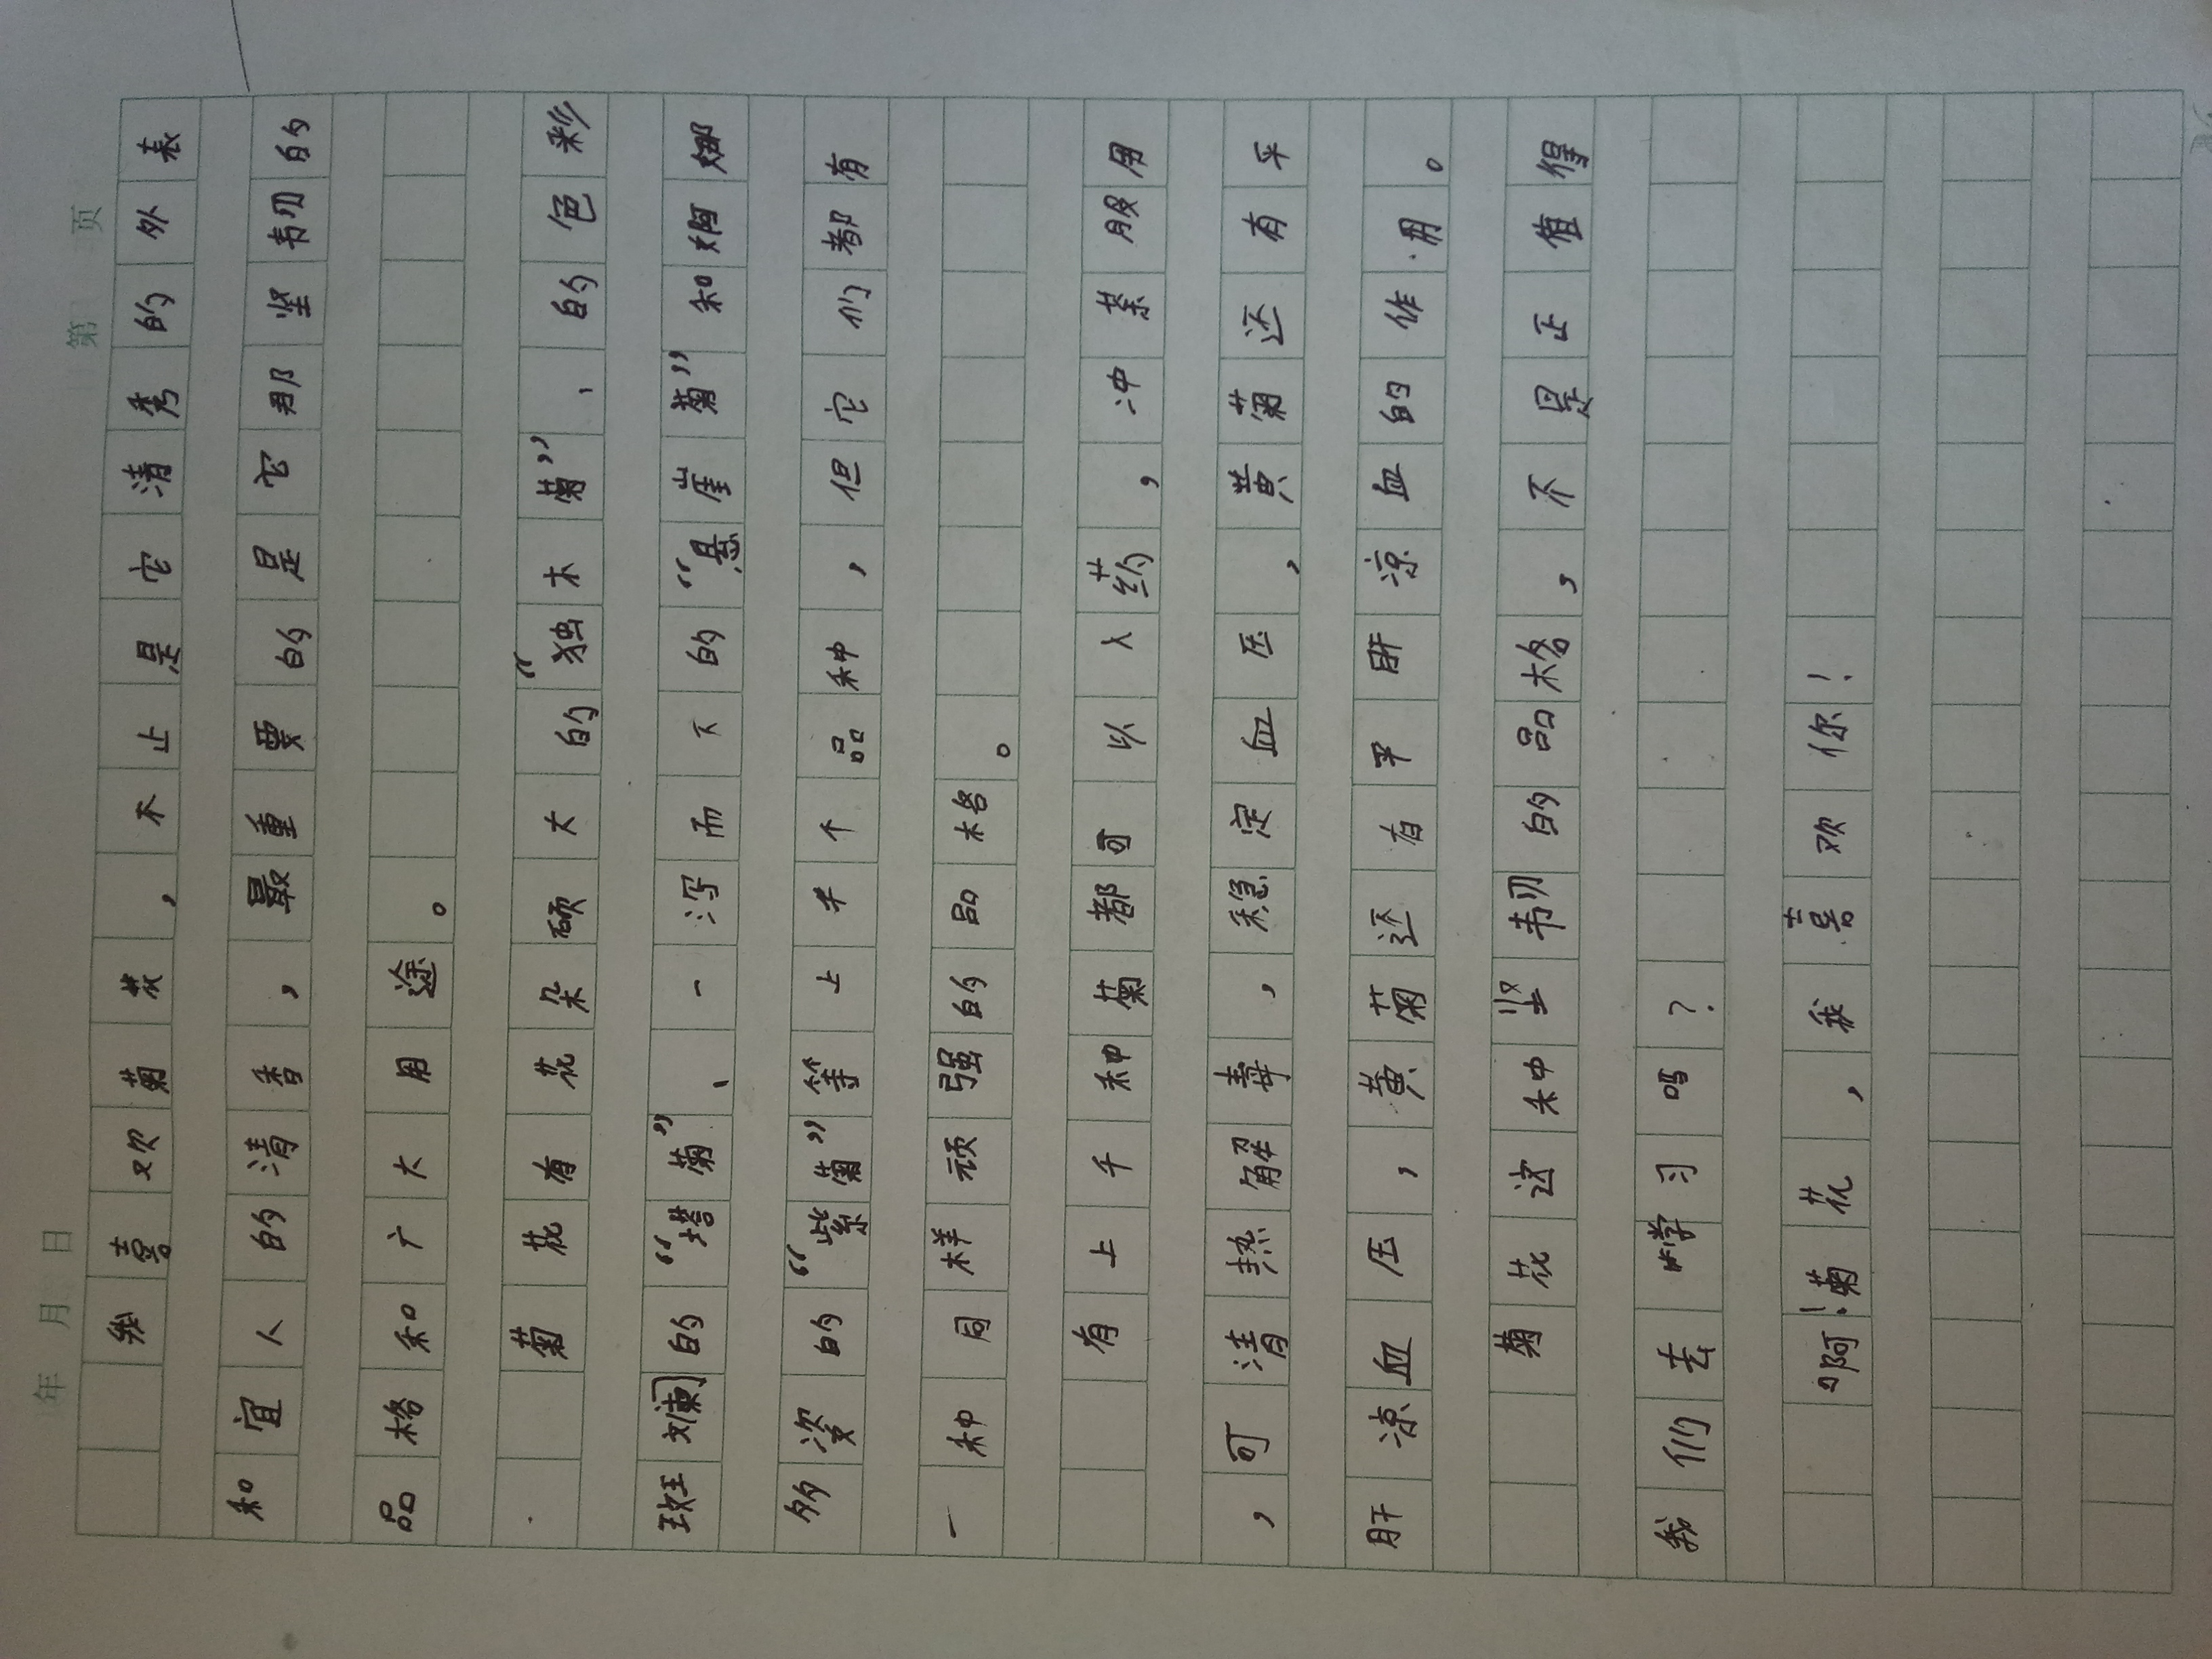 年 月 日 第 页
我喜欢菊花，不止是它清秀的外表
和宜人的清香，最重要的是它那坚韧的
品格和广大用途。
菊花有花朵硕大的“独木菊”、的色彩
斑斓的“塔菊”、一泻而下的“悬崖菊”和婀娜
多姿的“紫菊”等上千个品种，但它们都有
一种同样顽强的品格。
有上千种菊都可以入药，冲茶服用
，可清热解毒，稳定血压，黄菊还有平
肝凉血压，黄菊还有平肝凉血的作用。
菊花这种坚韧的品格，不是正值得
我们去学习吗？
啊！菊花，我喜欢你！